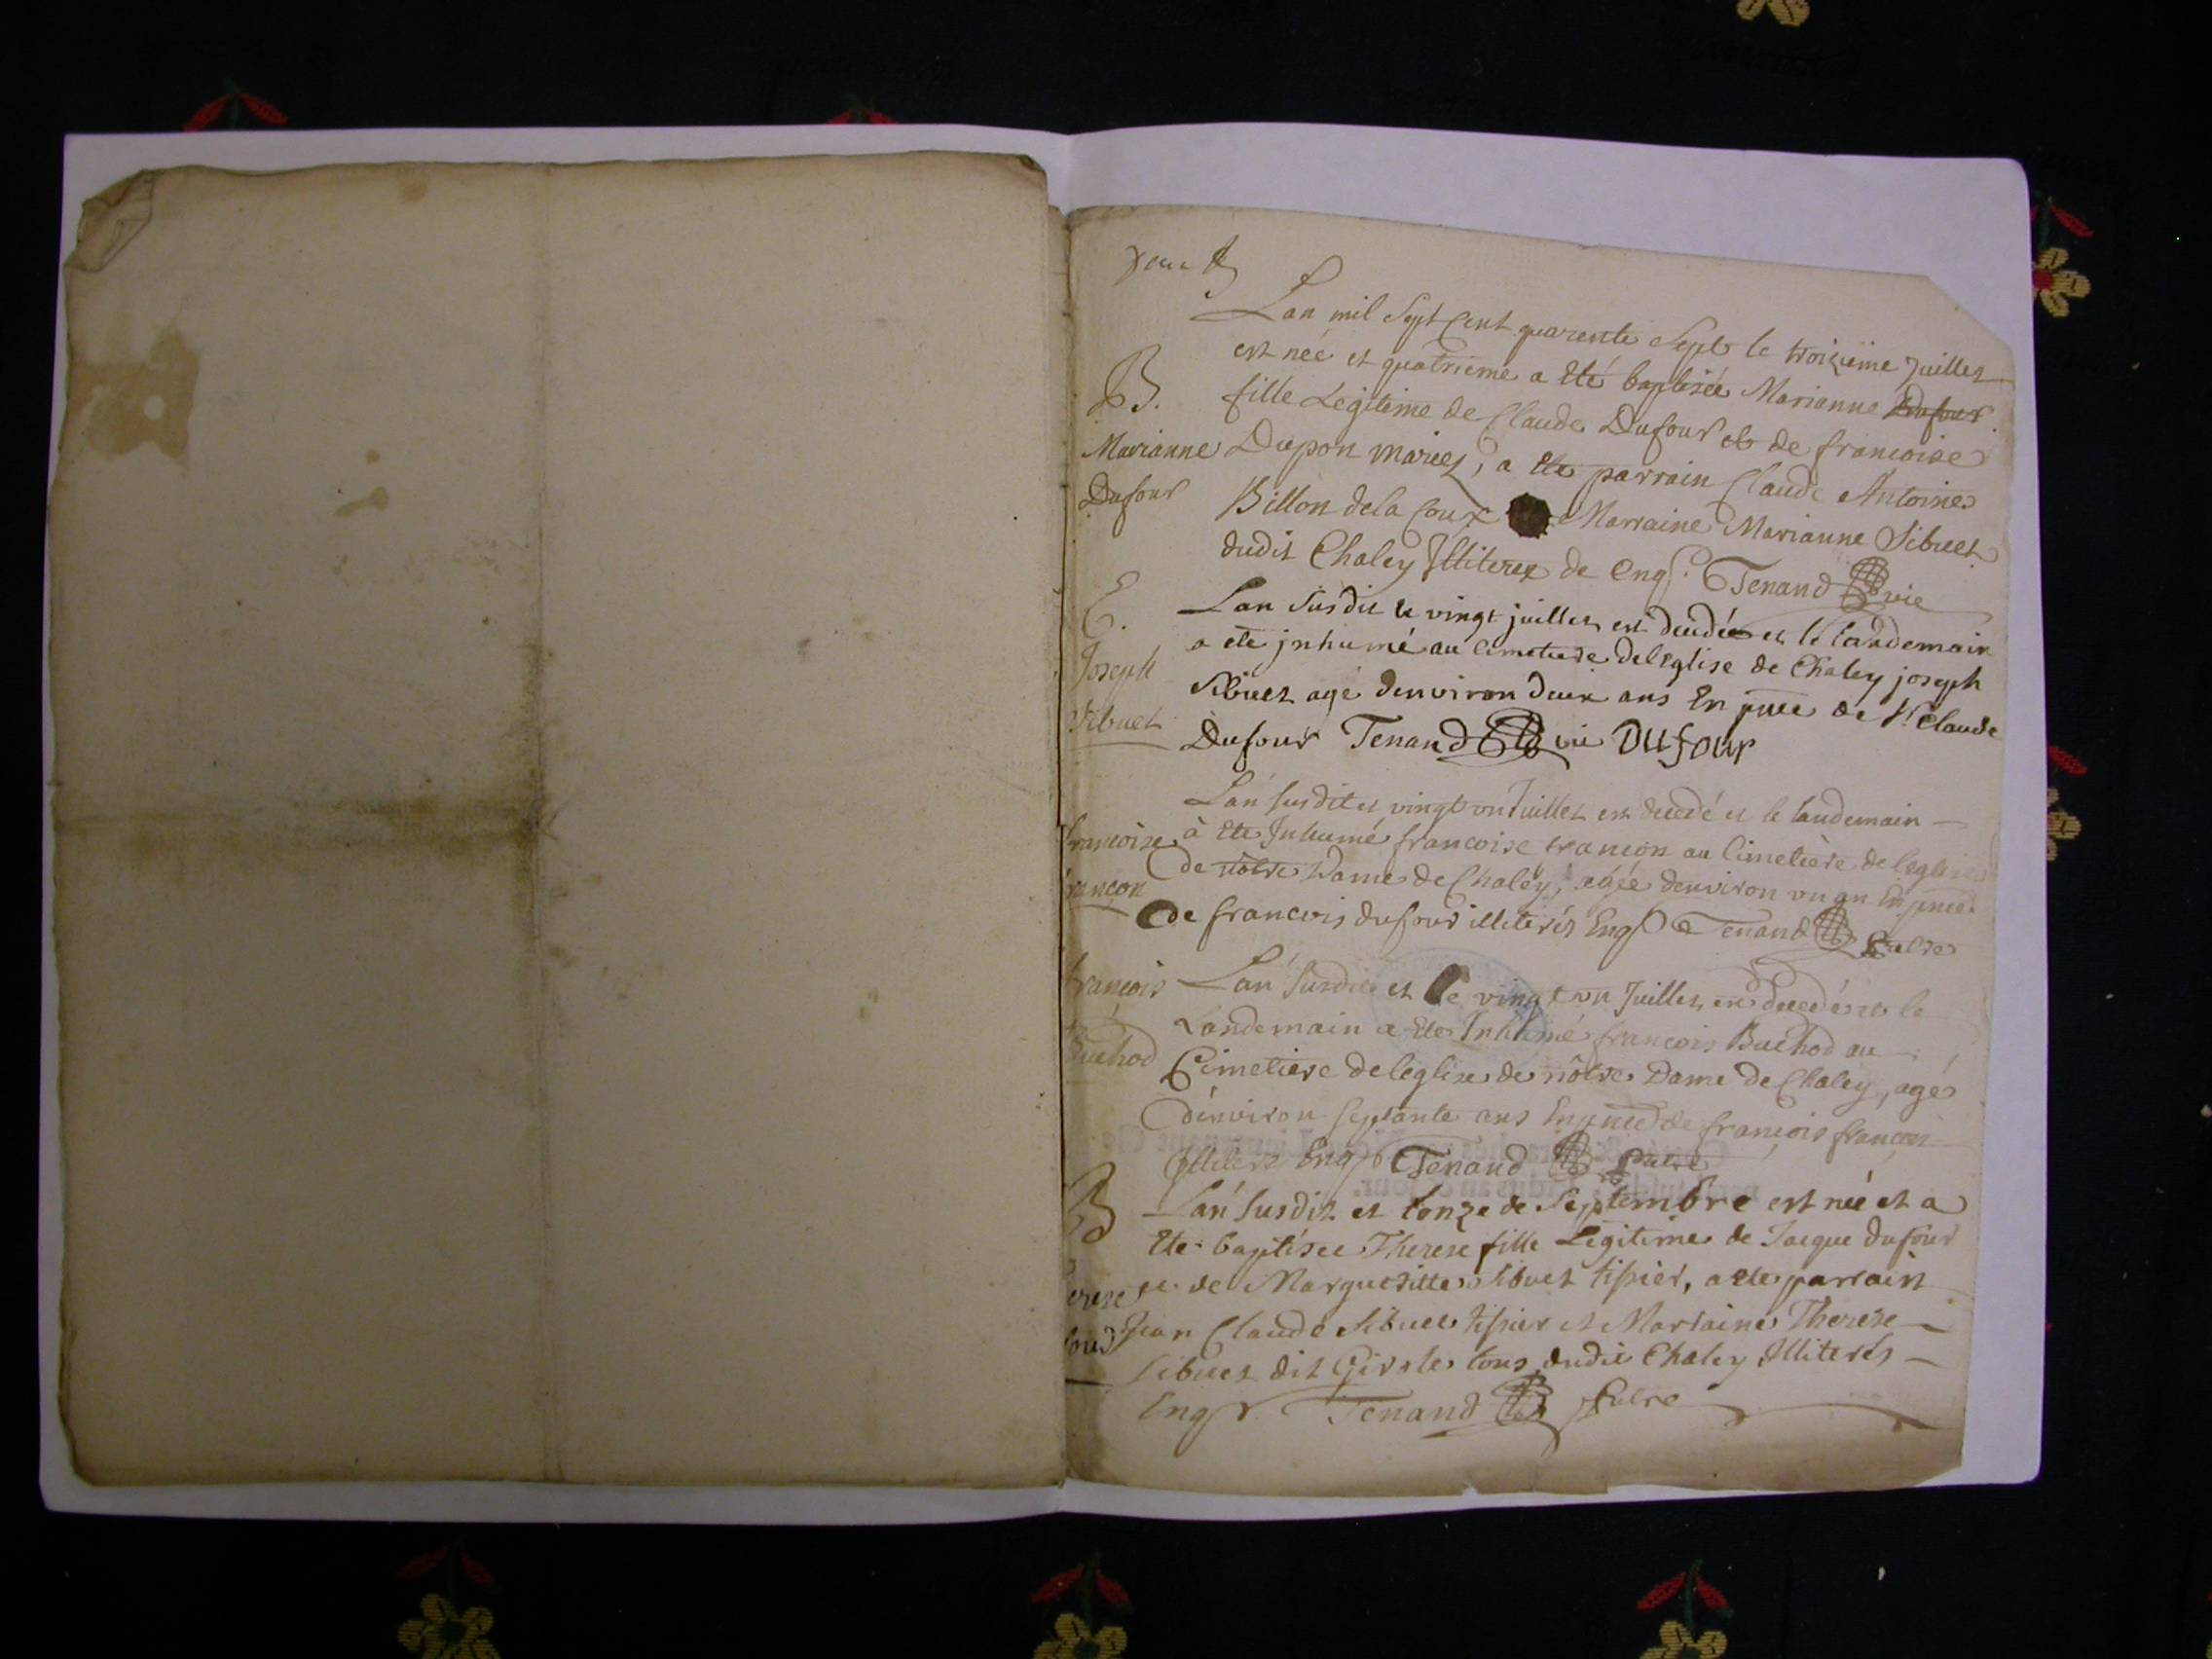 Lan mil Sept Cent quarente Sept le troizieme Juillet
est née et quatrieme a Eté baptisée Marianne Dufour
B.
fille Legitime de Claude Dufour et de francoise
Marianne
Dupon mariez, a Ete parrain Claude Antoine
Dufour
Billon dela Coux Marraine Marianne Sibuet
dudit Chaley Illiterez de Enq. Tenand vic
E.
Joseph
Sibuet
Lan Susdit le vingt juillet est decedée et le landemain
a eté jnhumé au cimetiere del Eglise de Chaley joseph
Sibuet agé denviron deux ans En pnce de Sr Claude
Dufour Tenand vic DUfour
Lan susdit et vingt vn Juillet est decedé et le landemain
francoise
francon
à Ete Inhumé francoise francon au Cimetière de leglise
de nôtre Dame de Chaley, agée denviron vn an En pnce
de francois dufour illiterés Enq Tenand ptre
françois
Buchod
Lan Susdit et le vingt vn Juillet est decedé et le
Landemain a Ete Inhumé françois Buchod au
Cimetiere de leglise de nôtre Dame de Chaley, agé
dénviron septante ans En pnce de françois francon
Illiteré Enq Tenand ptre
B
Lan Susdit et Lonze de Septembre est née et a
Eté baptisée Therese fille Legitime de Jacque dufour
et de Margueritte Sibuet tissier, a ete parrain
Jean Claude Sibuet tissier et Marraine Therese
Sibuet dit Girole tous dudit Chaley Illiterés
Enq Tenand ptre